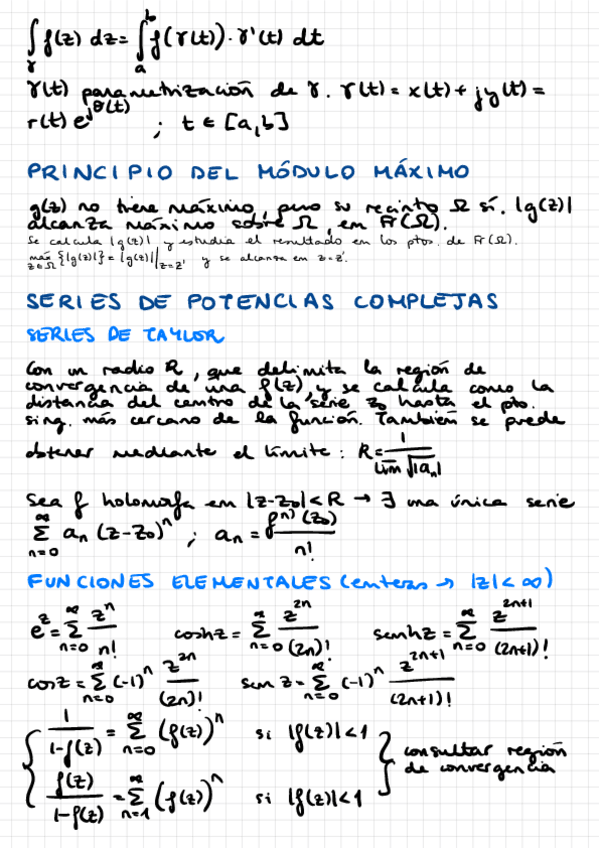 ∫_γ f(z) dz = ∫_a^b f(γ(t))·γ'(t) dt
γ(t) parametrización de γ. γ(t) = x(t) + j y(t) =
r(t) e^{jθ(t)} ; t ∈ [a,b]
PRINCIPIO DEL MÓDULO MÁXIMO
g(z) no tiene máximo, pero su recinto Ω sí. |g(z)|
alcanza máximo sobre Ω, em Fr(Ω).
Se calcula |g(z)| y estudia el resultado en los ptos. de Fr(Ω).
máx_{z∈Ω} {|g(z)|} = |g(z)| |_{z=z'} y se alcanza em z=z'.
SERIES DE POTENCIAS COMPLEJAS
SERIES DE TAYLOR
Con un radio R, que delimita la región de
convergencia de una f(z), y se calcula como la
distancia del centro de la serie z_0 hasta el pto.
sing. más cercano de la función. También se puede
obtener mediante el límite: R = 1 / lim ⁿ√|a_n|
Sea f holomorfa em |z-z_0| < R → ∃ una única serie
∑_{n=0}^∞ a_n (z-z_0)^n ; a_n = f^{n)}(z_0) / n!
FUNCIONES ELEMENTALES (enteras → |z| < ∞)
e^z = ∑_{n=0}^∞ z^n / n! cosh z = ∑_{n=0}^∞ z^{2n} / (2n)! senh z = ∑_{n=0}^∞ z^{2n+1} / (2n+1)!
cos z = ∑_{n=0}^∞ (-1)^n z^{2n} / (2n)! sen z = ∑_{n=0}^∞ (-1)^n z^{2n+1} / (2n+1)!
1 / (1-f(z)) = ∑_{n=0}^∞ (f(z))^n si |f(z)| < 1
consultar región
de convergencia
f(z) / (1-f(z)) = ∑_{n=1}^∞ (f(z))^n si |f(z)| < 1